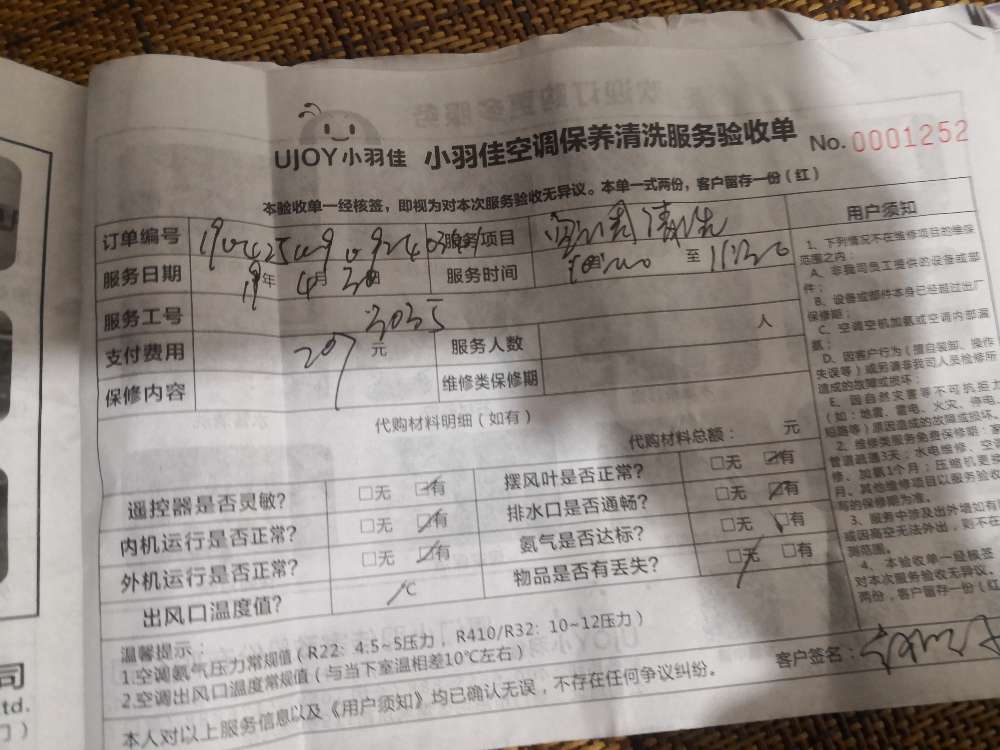 UJOY小羽佳 小羽佳空调保养清洗服务验收单 No. 0001252
本验收单一经核签，即视为对本次服务验收无异议。本单一式两份，客户留存一份（红）
订单编号 服务项目
服务日期 19年 4月 30日 服务时间 至 11:30
服务工号 3035
支付费用 207元 服务人数 人
保修内容 维修类保修期
代购材料明细（如有）
代购材料总额： 元
遥控器是否灵敏? □无 ☑有 摆风叶是否正常? □无 ☑有
内机运行是否正常? □无 ☑有 排水口是否通畅? □无 ☑有
外机运行是否正常? □无 ☑有 氨气是否达标? □无 ☑有
出风口温度值? / ℃ 物品是否有丢失? ☑无 □有
温馨提示：
1.空调氨气压力常规值（R22：4.5~5压力，R410/R32：10~12压力）
2.空调出风口温度常规值（与当下室温相差10℃左右）
本人对以上服务信息以及《用户须知》均已确认无误，不存在任何争议纠纷。
客户签名：
用户须知
1、下列情况不在维修项目的维保
范围之内：
A、非我司员工提供的设备或部
件；
B、设备或部件本身已经超过出厂
保修期；
C、空调空机加氨或空调内部漏
氨；
D、因客户行为（擅自装卸、操作
失误等）或另请非我司人员检修所
造成的故障或损坏；
E、因自然灾害等不可抗拒力
（如：地震、雷电、火灾、停电、
短路等）原因造成的故障或损坏。
2、维修类服务免费保修期：
管道疏通3天；水电维修、空
修、加氨1个月；压缩机更
月、其他维修项目以服务验收
写的保修期为准。
3、服务中涉及出外墙如有
或因高空无法外出，则不在
测范围。
4、本验收单一经核签
对本次服务验收无异议。
两份，客户留存一份（红
司
td.
门）